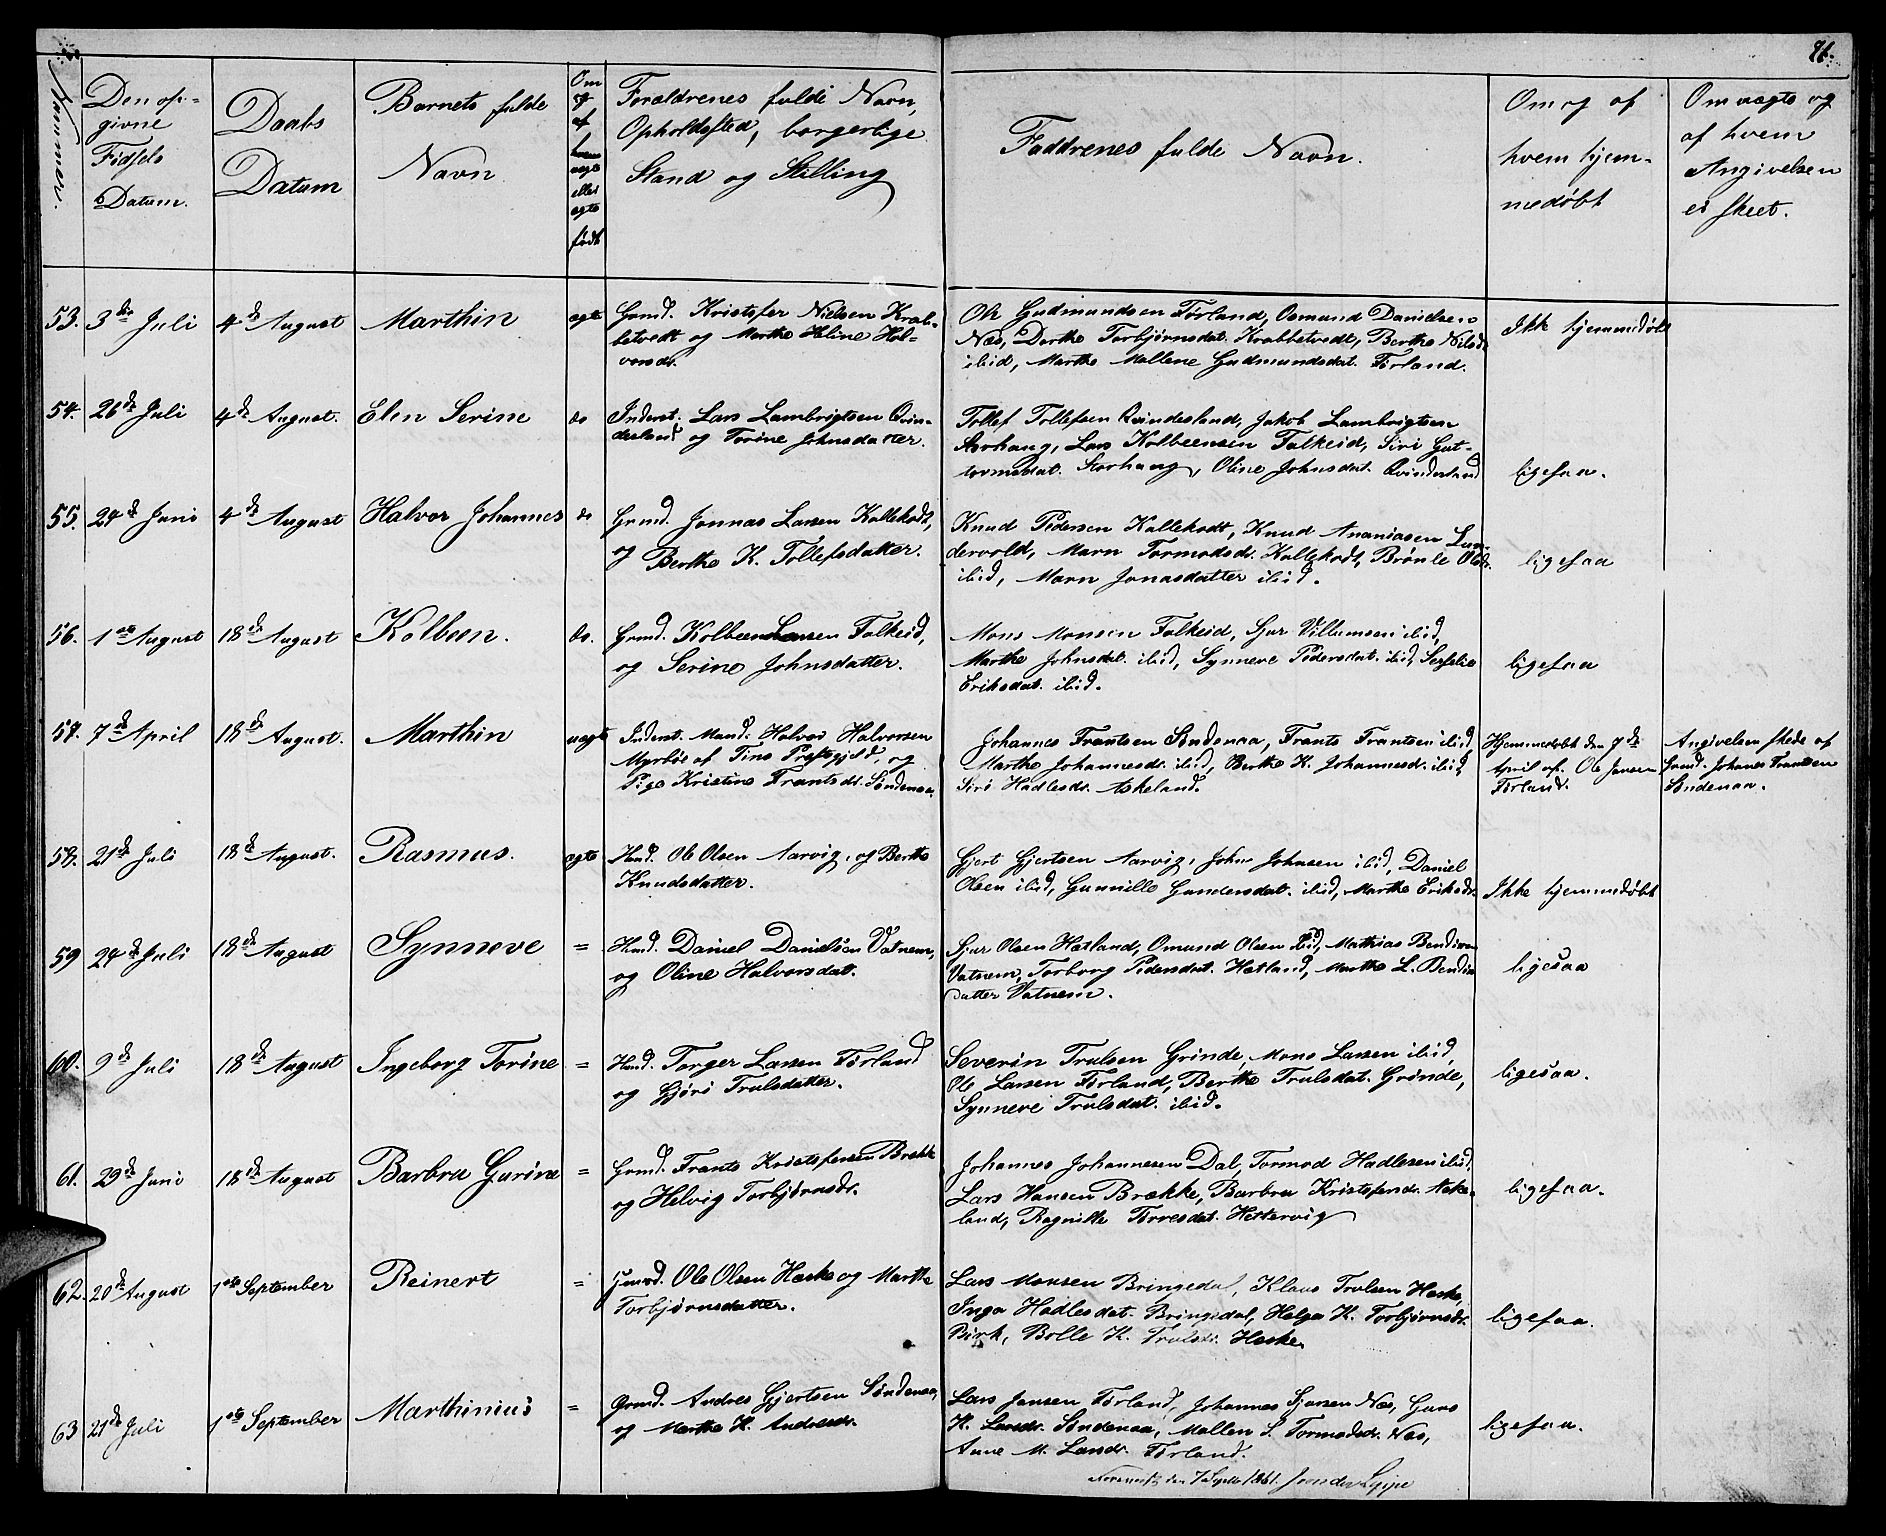 71.
Nummer.
Den op-
givne
Födsels
Datum.
Daabs
Datum
Barnets fulde
Navn
Om
og
af
hvem
uægte
eller
ægte
født
Forældrenes fulde Navn,
Opholdssted, borgerlige
Stand og Stilling
Faddrenes fulde Navn.
Om og af
hvem hjem-
medøbt
Om ægte og
af hvem
Angivelsen
er skeet.
53. 3die Juli 4de August Marthin ægte Grmd. Kristofer Nielsen Krab-
betvedt og Marthe Heline Hal-
vorsdr.
Ole Gudmundsen Förland, Osmund Danielsen
Næs, Dorthe Torbjørnsdat. Krabbetvedt, Berthe Nilsd.
ibid, Marthe Mallene Gudmundsdat. Förland.
Ikke hjemmedøbt
54. 26de Juli 4de August. Elen Serine do Inderst. Lars Lambrigtsen Qvin-
desland og Torine Johnsdatter.
Tollef Tollefsen Qvindesland, Jakob Lambrigtsen
Storhaug, Lars Kolbeensen Falkeid, Siri Gut-
tormsdat. Storhaug, Oline Johnsdat. Qvindesland
ligesaa.
55. 24de Juni 4de August Halvor Johannes do Grmd. Jonnas Larsen Kallekodt,
og Berthe K. Tollefsdatter.
Knud Pedersen Kallekodt, Knud Ananiasen Lun-
dervold, Marn Tormodsdr. Kallekodt, Brönle Olsdr.
ibid, Marn Jonasdatter ibid.
ligesaa
56. 1ste August 18de August Kolbeen. do. Grmd. Kolbeen Larsen Falkeid,
og Serine Johnsdatter.
Mons Monsen Falkeid, Sjur Villumsen ibid,
Marthe Johnsdat. ibid, Synneve Pedersdat. ibid, Serselie
Eriksdat. ibid.
ligesaa
57. 7de April 18de August. Marthin uægte Inderst. Mand. Halvor Halvorsen
Myrbøe af Tins Præstgjeld, og
Pige Kristine Frantsdr. Söndenaa.
Johannes Frantsen Söndenaa, Frants Frantsen ibid,
Marthe Johannesdr. ibid, Berthe K. Johannesdr. ibid,
Siri Hadlesdr. Askeland.
Hjemmedøbt den 7de
April af. Ole Jansen
Förland.
Angivelsen skede af
Grmd. Johanes Frantsen
Söndenaa.
58. 21de Juli 18de August. Rasmus. ægte Hmd. Ole Olsen Aarvig, og Berthe
Knudsdatter.
Gjert Gjertsen Aarvig, John Johnsen ibid, Daniel
Olsen ibid, Gunnille Gundersdat. ibid, Marthe Eriksdr.
Ikke hjemmedøbt
59 24de Juli 18de August Synneve = Hmd. Daniel Danielsen Vatnem,
og Oline Halvorsdat.
Sjur Olsen Hetland, Omund Olsen ibid, Mathias Bendixen
Vatnem, Torborg Pedersdat. Hetland, Marthe L. Bendix
datter Vatnem.
ligesaa
60. 9de Juli 18de August Ingeborg Torine = Hmd. Torger Larsen Förland
og Gjöri Trulsdatter.
Severin Trulsen Grinde, Mons Larsen ibid,
Ole Larsen Förland, Berthe Trulsdat. Grinde,
Synneve Trulsdat. ibid.
ligesaa.
61. 29de Juni 18de August Barbra Gurine = Grmd. Frants Kristofersen Brække
og Helvig Torbjørnsdr.
Johannes Johannesen Dal, Tormod Hadlesen ibid,
Lars Hansen Brække, Barbra Kristofersdr. Aske-
land, Ragnille Torresdat. Hettervig
ligesaa.
62. 20de August 1ste September Reinert = Grmd. Ole Olsen Heske og Marthe
Torbjørnsdatter.
Lars Monsen Bringedal, Klaus Trulsen Heske,
Inga Hadlesdat. Bringedal, Helga K. Torbjørnsdr.
Birk, Bolle K. Trulsdr. Heske.
ligesaa.
63 21de Juli 1ste September Marthinius = Grmd. Andres Gjertsen Söndenaa,
og Marthe K. Andersdr.
Lars Jansen Förland, Johannes Sjursen Næs, Guro
K. Larsdr. Söndenaa, Mallen S. Tormodsdr. Næs,
Anne M. Larsdr. Förland.
ligesaa.
den 7 Septbr 1861.